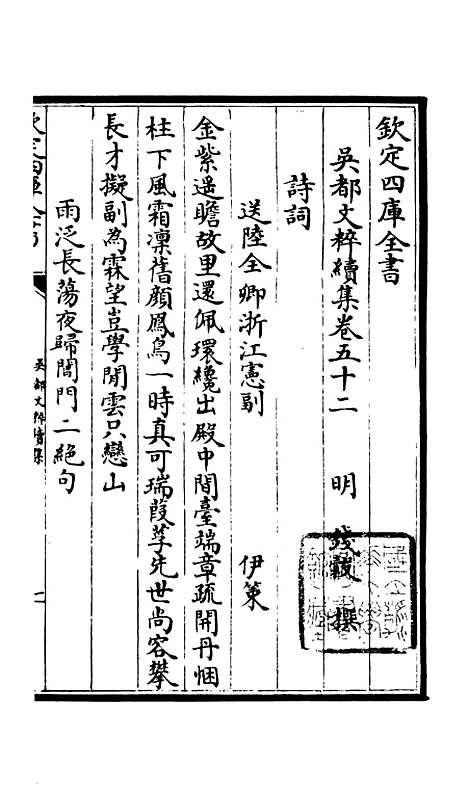 欽定四庫全書
吳都文粹續集卷五十二 明 錢穀 撰
詩詞
送陸全卿浙江憲副 伊策
金紫遥瞻故里還佩環纔出殿中間臺端章疏開丹悃
柱下風霜凜舊顔鳳鳥一時真可瑞葭莩先世尚容攀
長才擬副為霖望豈學閒雲只戀山
雨泛長蕩夜歸閶門二絶句
欽定四庫全書
吳都文粹續集